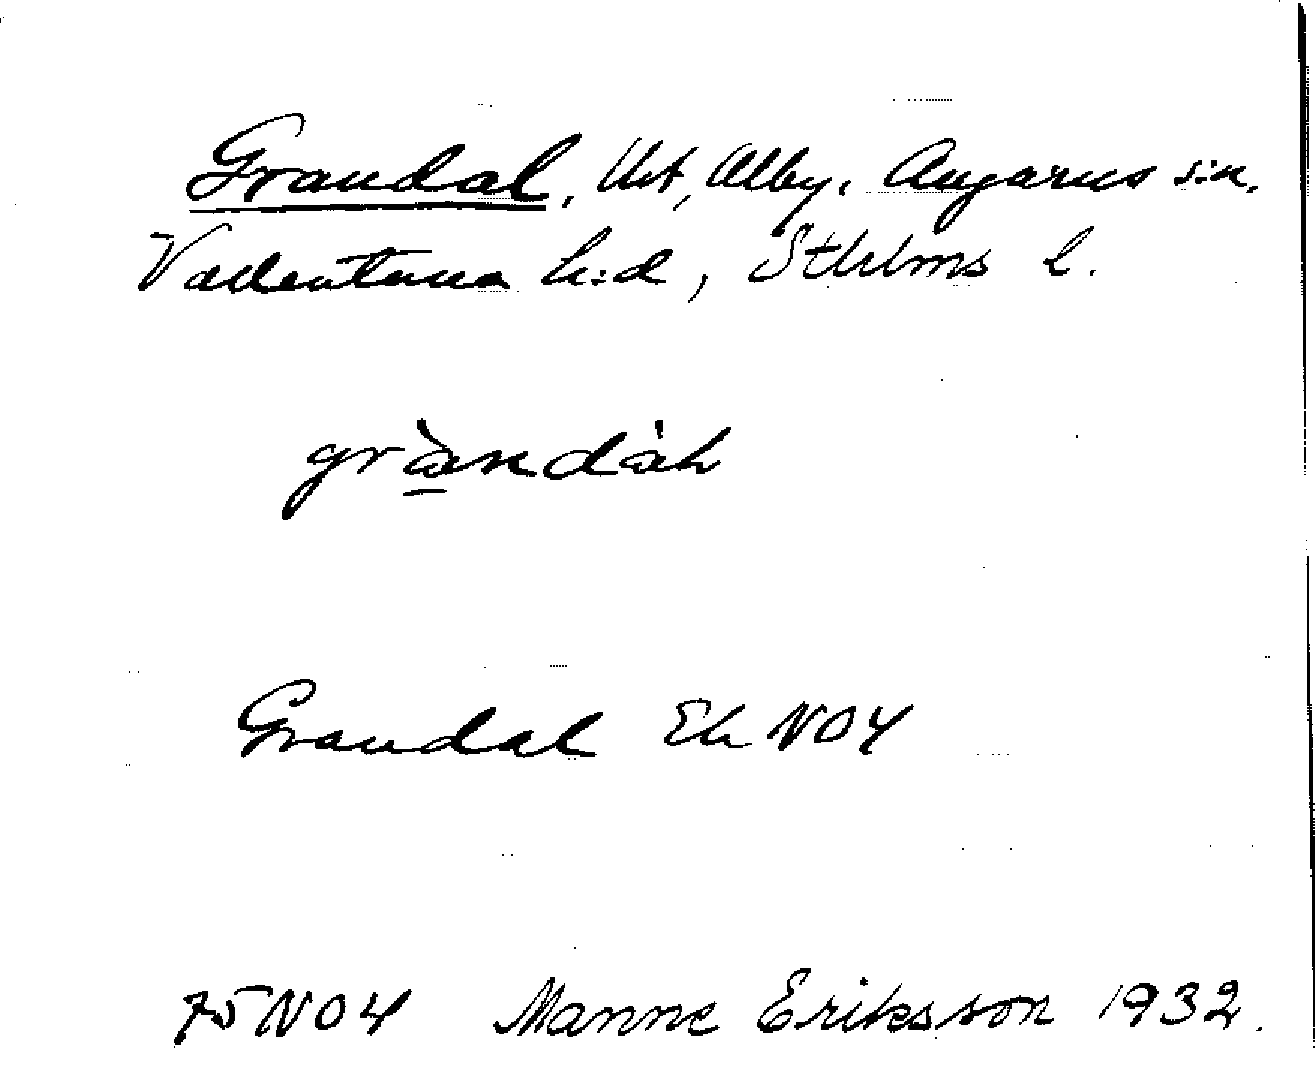 Grandal, Urt, Alby, Angarns s:n,
Vallentuna h:d, Sthlms l.
gràndàl
Grandal Ek NO4
75 NO4 Manne Eriksson 1932.